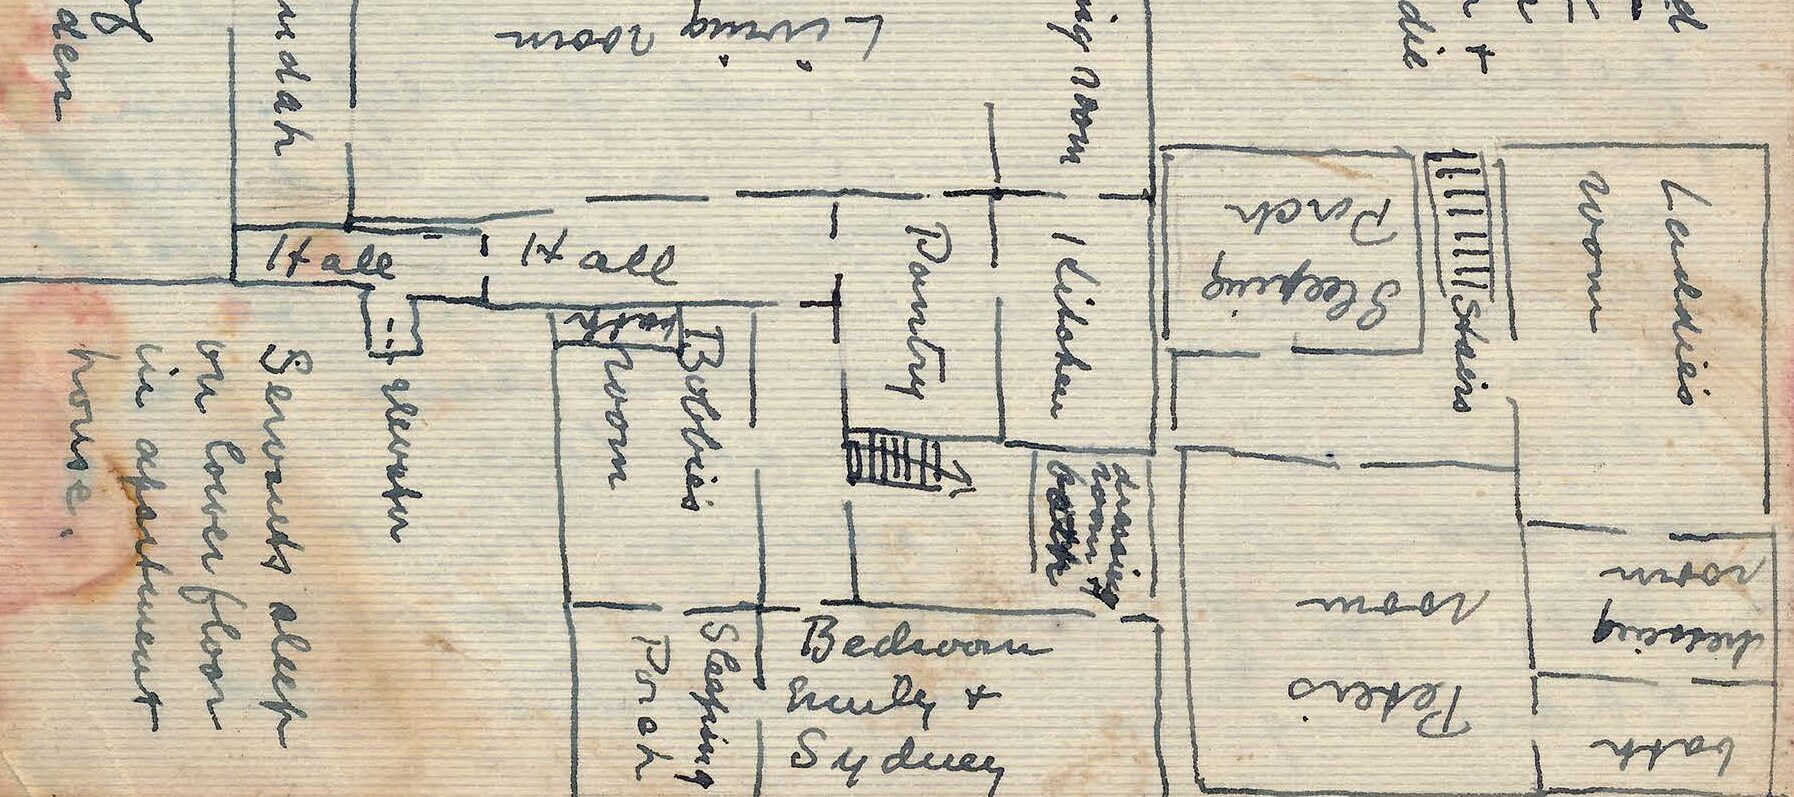 Living room
ing room
ndah
den
die
Hall
Hall
Pantry
Kitchen
Sleeping
Porch
Stairs
Laddies
room
bath
Bobbies
room
elevator
Servants sleep
on lower floor
in apartment
house.
dressing
room +
bath
Sleeping
Porch
Bedroom
Emily +
Sydney
Peters
room
dressing
room
bath